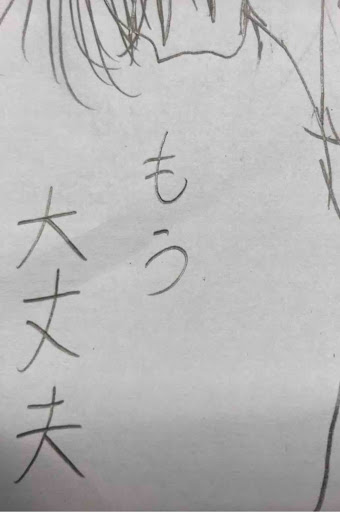 もう
大丈夫